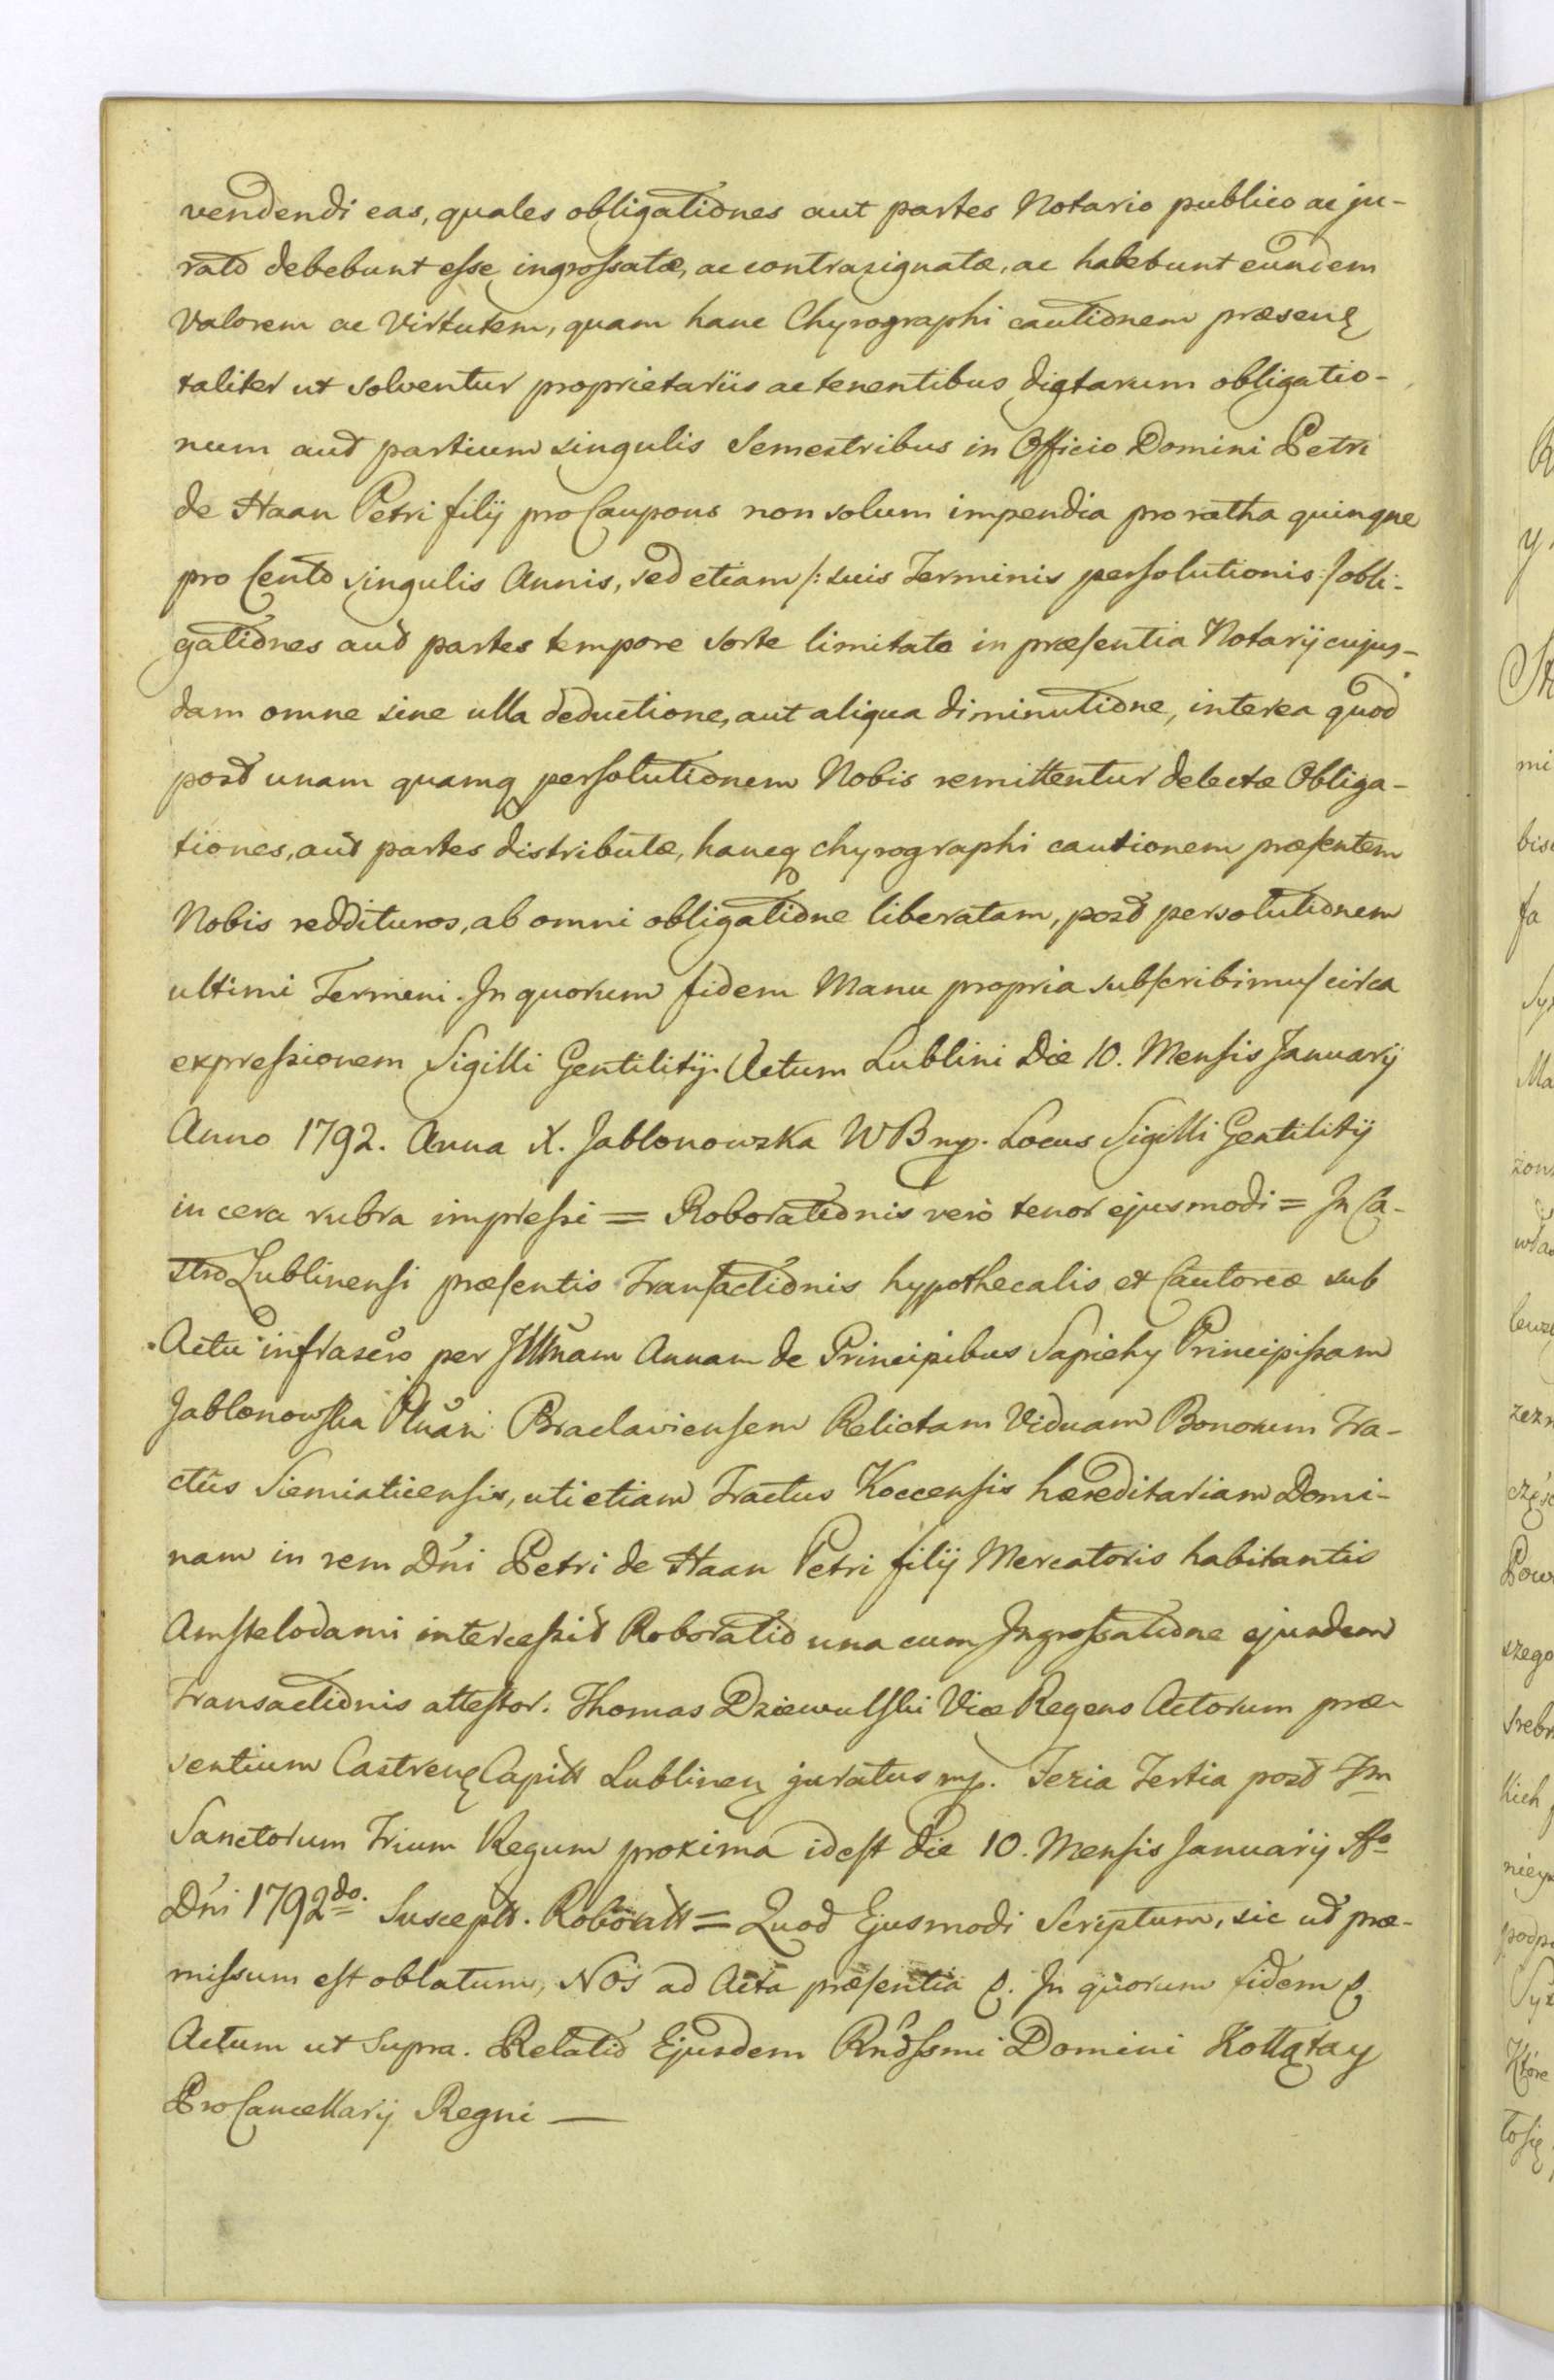 vendendi eas, quales obligationes aut partes Notario publico ac ju-
rato debebunt esse ingrossatæ, ac contrasignatæ, ac habebunt eundem
Valorem ac Virtutem, quam hanc Chyrographi cautionem præsenę
taliter ut solventur proprietariis ac tenentibus dictarum obligatio-
num aut partium singulis Semestribus in Officio Domini Petri
de Haan Petri filij pro Coupons non solum impendia pro ratha quinque
pro Cento singulis Annis, sed etiam /: suis Terminis persolutionis :/ obli-
gationes aut partes tempore sorte limitata in præsentia Notarij cujus-
dam omne sine ulla deductione, aut aliqua diminutione, interea quod
post unam quamq persolutionem Nobis remittentur delectæ Obliga-
tiones, aut partes distributæ, hancq chyrographi cautionem præsentem
Nobis reddituros, ab omni obligatione liberatam, post persolutionem
ultimi Termini. In quorum fidem Manu propria subscribimus circa
expressionem Sigilli Gentilitij. Actum Lublini Die 10. Mensis Januarij
Anno 1792. Anna X. Jabłonowska WB mp. Locus Sigilli Gentilitij
in cera rubra impressi = Roborationis verò tenor ejusmodi = In Ca-
stro Lublinensi præsentis Transactionis hypothecalis et Cautoreæ sub
Actu infrascro per Illnam Annam de Principibus Sapiehy Principissam
Jabłonowska Pltnan Braclaviensem Relictam Viduam Bonorum Tra-
ctus Siemiaticensis, uti etiam Tractus Koccensis hæreditariam Domi-
nam in rem Dni Petri de Haan Petri filij Mercatoris habitantis
Amstelodami intercessit Roboratio una cum Ingrossatione ejusdem
Transactionis attestor. Thomas Dziewulski Vice Regens Actorum præ-
sentium Castrenę Capitt Lublinenę juratus mp. Feria Tertia post Fm
Sanctorum Trium Regum proxima idest die 10. Mensis Januarij Ao
Dni 1792do. Susceptt. Roboratt = Quod Ejusmodi Scriptum, sic ut præ-
missum est oblatum, Nos ad Acta præsentia &. In quorum fidem &
Actum ut Supra. Relatio Ejusdem Rndssmi Domini Kołłątay
Pro Cancellarij Regni —